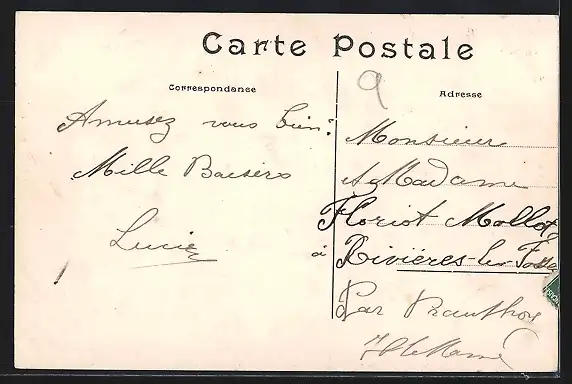 Carte Postale
Correspondance
Adresse
9
Amusez vous bien.
Mille Baisers
Lucie
Monsieur
et Madame
Floriot Mollot
à Rivières-les-Fosses
Par Prauthoy
Hte Marne